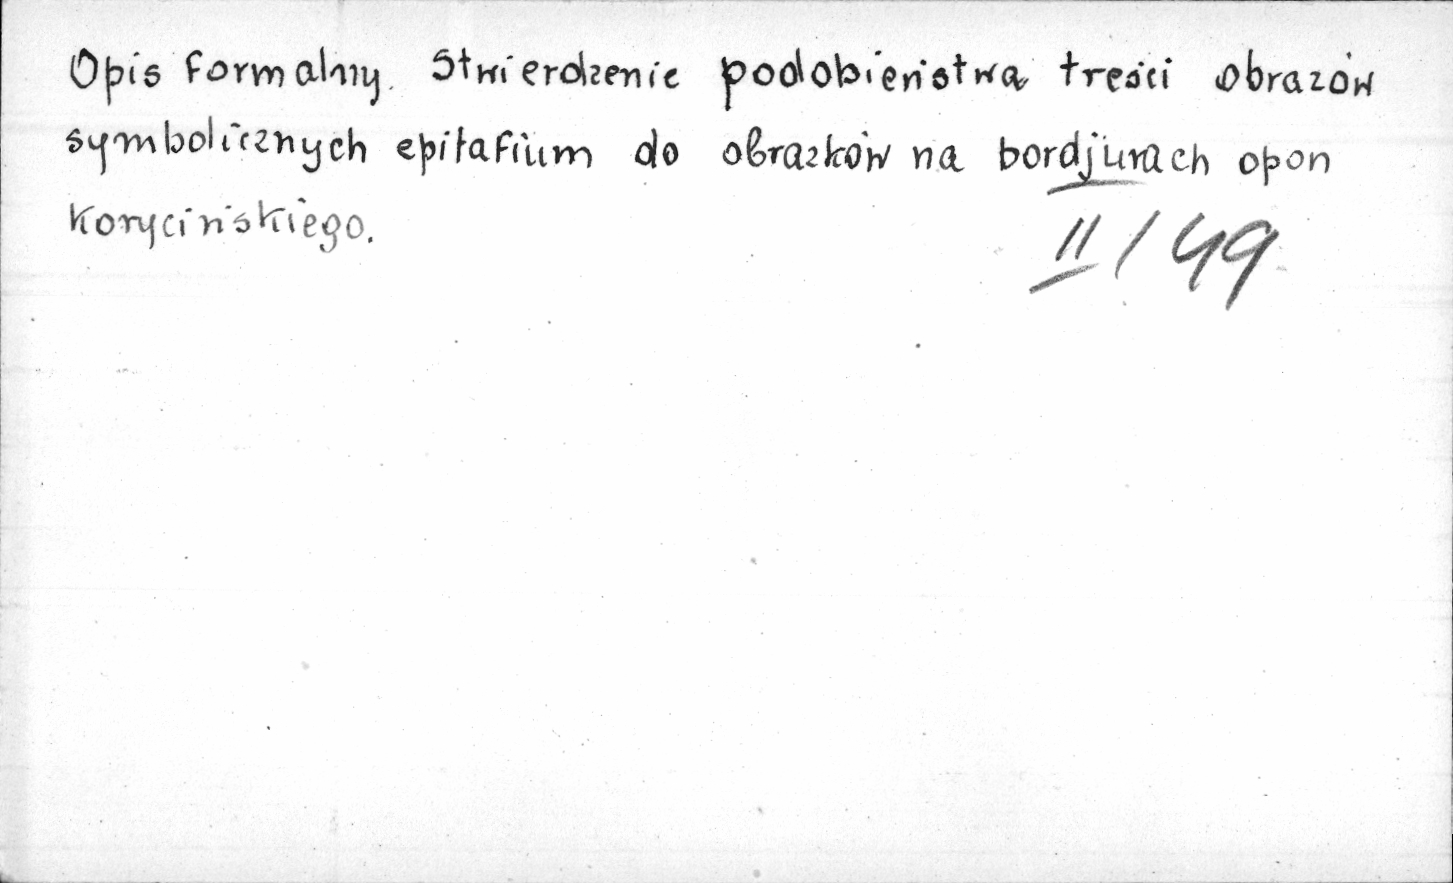 Opis formalny. Stwierdzenie podobieństwa treści obrazów
symbolicznych epitafium do obrazków na bordjurach opon
Korycińskiego.
II / 49